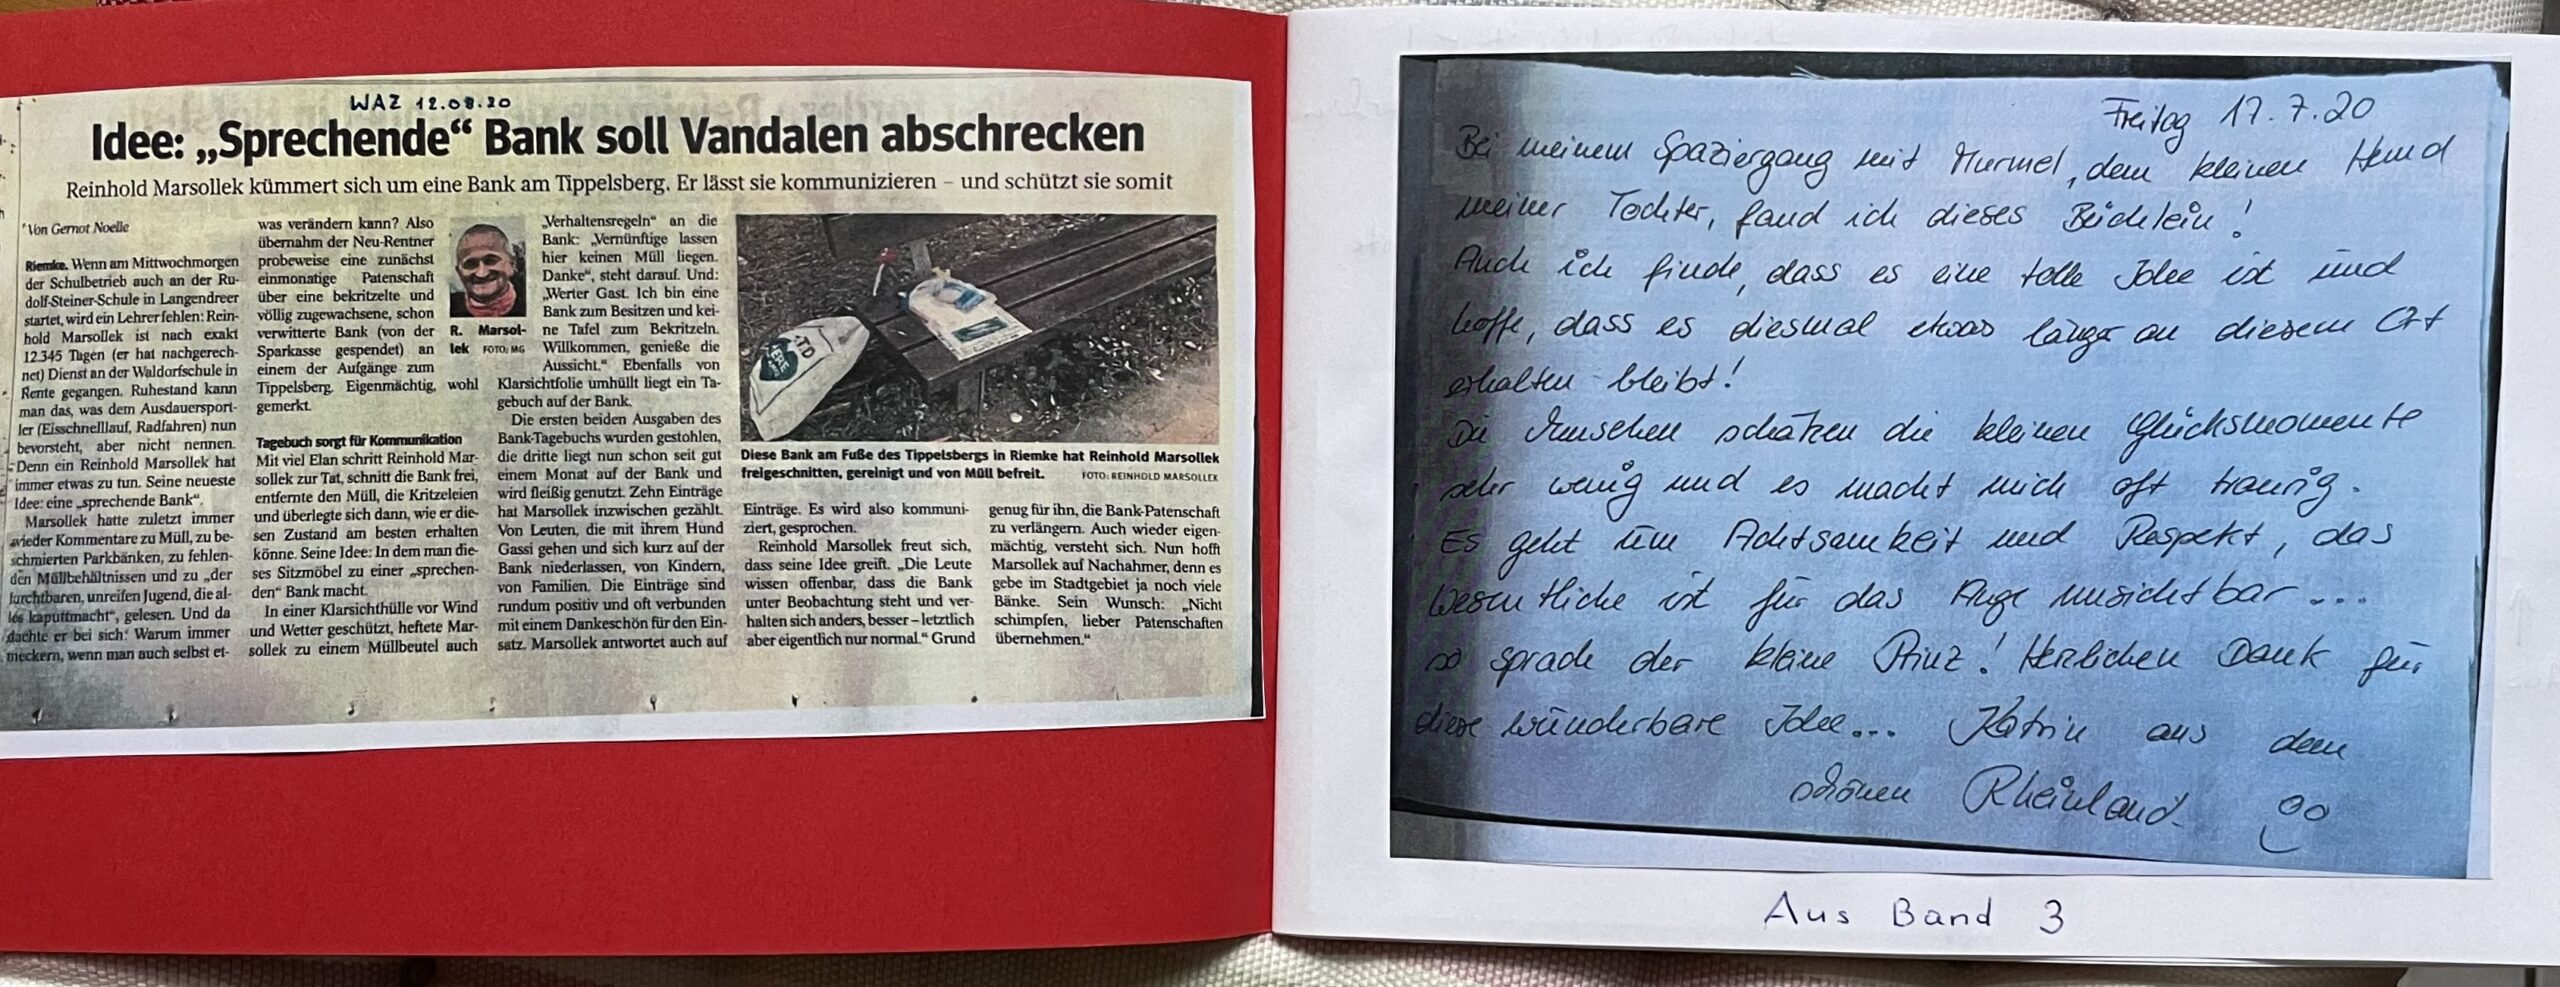 WAZ 12.08.20
Idee: „Sprechende“ Bank soll Vandalen abschrecken
Reinhold Marsollek kümmert sich um eine Bank am Tippelsberg. Er lässt sie kommunizieren – und schützt sie somit
Von Gernot Noelle
Riemke. Wenn am Mittwochmorgen
der Schulbetrieb auch an der Ru-
dolf-Steiner-Schule in Langendreer
startet, wird ein Lehrer fehlen: Rein-
hold Marsollek ist nach exakt
12.345 Tagen (er hat nachgerech-
net) Dienst an der Waldorfschule in
Rente gegangen. Ruhestand kann
man das, was dem Ausdauersport-
ler (Eisschnelllauf, Radfahren) nun
bevorsteht, aber nicht nennen.
Denn ein Reinhold Marsollek hat
immer etwas zu tun. Seine neueste
Idee: eine „sprechende Bank“.
Marsollek hatte zuletzt immer
wieder Kommentare zu Müll, zu be-
schmierten Parkbänken, zu fehlen-
den Müllbehältnissen und zu „der
furchtbaren, unreifen Jugend, die al-
les kaputtmacht“, gelesen. Und da
dachte er bei sich: Warum immer
meckern, wenn man auch selbst et-
was verändern kann? Also
übernahm der Neu-Rentner
probeweise eine zunächst
einmonatige Patenschaft
über eine bekritzelte und
völlig zugewachsene, schon
verwitterte Bank (von der
Sparkasse gespendet) an
einem der Aufgänge zum
Tippelsberg. Eigenmächtig, wohl
gemerkt.
Tagebuch sorgt für Kommunikation
Mit viel Elan schritt Reinhold Mar-
sollek zur Tat, schnitt die Bank frei,
entfernte den Müll, die Kritzeleien
und überlegte sich dann, wie er die-
sen Zustand am besten erhalten
könne. Seine Idee: In dem man die-
ses Sitzmöbel zu einer „sprechen-
den“ Bank macht.
In einer Klarsichthülle vor Wind
und Wetter geschützt, heftete Mar-
sollek zu einem Müllbeutel auch
R. Marsol-
lek FOTO: MG
„Verhaltensregeln“ an die
Bank: „Vernünftige lassen
hier keinen Müll liegen.
Danke“, steht darauf. Und:
„Werter Gast. Ich bin eine
Bank zum Besitzen und kei-
ne Tafel zum Bekritzeln.
Willkommen, genieße die
Aussicht.“ Ebenfalls von
Klarsichtfolie umhüllt liegt ein Ta-
gebuch auf der Bank.
Die ersten beiden Ausgaben des
Bank-Tagebuchs wurden gestohlen,
die dritte liegt nun schon seit gut
einem Monat auf der Bank und
wird fleißig genutzt. Zehn Einträge
hat Marsollek inzwischen gezählt.
Von Leuten, die mit ihrem Hund
Gassi gehen und sich kurz auf der
Bank niederlassen, von Kindern,
von Familien. Die Einträge sind
rundum positiv und oft verbunden
mit einem Dankeschön für den Ein-
satz. Marsollek antwortet auch auf
Diese Bank am Fuße des Tippelsbergs in Riemke hat Reinhold Marsollek
freigeschnitten, gereinigt und von Müll befreit. FOTO: REINHOLD MARSOLLEK
Einträge. Es wird also kommuni-
ziert, gesprochen.
Reinhold Marsollek freut sich,
dass seine Idee greift. „Die Leute
wissen offenbar, dass die Bank
unter Beobachtung steht und ver-
halten sich anders, besser – letztlich
aber eigentlich nur normal.“ Grund
genug für ihn, die Bank-Patenschaft
zu verlängern. Auch wieder eigen-
mächtig, versteht sich. Nun hofft
Marsollek auf Nachahmer, denn es
gebe im Stadtgebiet ja noch viele
Bänke. Sein Wunsch: „Nicht
schimpfen, lieber Patenschaften
übernehmen.“
Freitag 17.7.20
Bei meinem Spaziergang mit Murmel, dem kleinen Hund
meiner Tochter, fand ich dieses Büchlein!
Auch ich finde, dass es eine tolle Idee ist und
hoffe, dass es diesmal etwas länger an diesem Ort
erhalten bleibt!
Die Menschen schätzen die kleinen Glücksmomente
sehr wenig und es macht mich oft traurig.
Es geht um Achtsamkeit und Respekt, das
Wesentliche ist für das Auge unsichtbar...
so sprach der kleine Prinz! Herzlichen Dank für
diese wunderbare Idee... Katrin aus dem
schönen Rheinland.
Aus Band 3